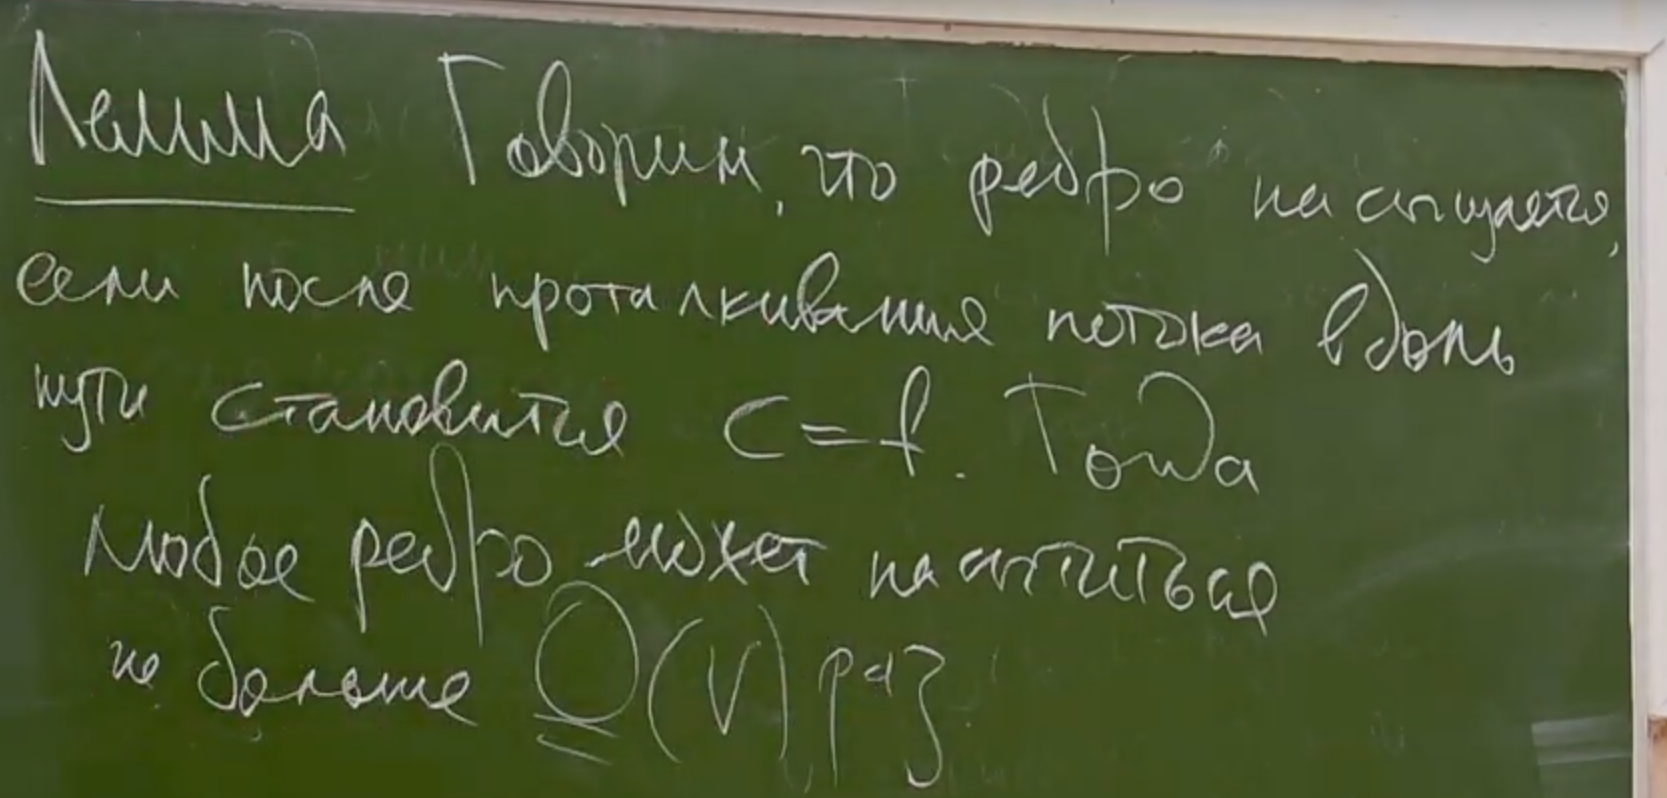 Лемма Говорим, что ребро насыщается,
если после проталкивания потока вдоль
пути становится c=f. Тогда
любое ребро может насытиться
не больше O(V) раз